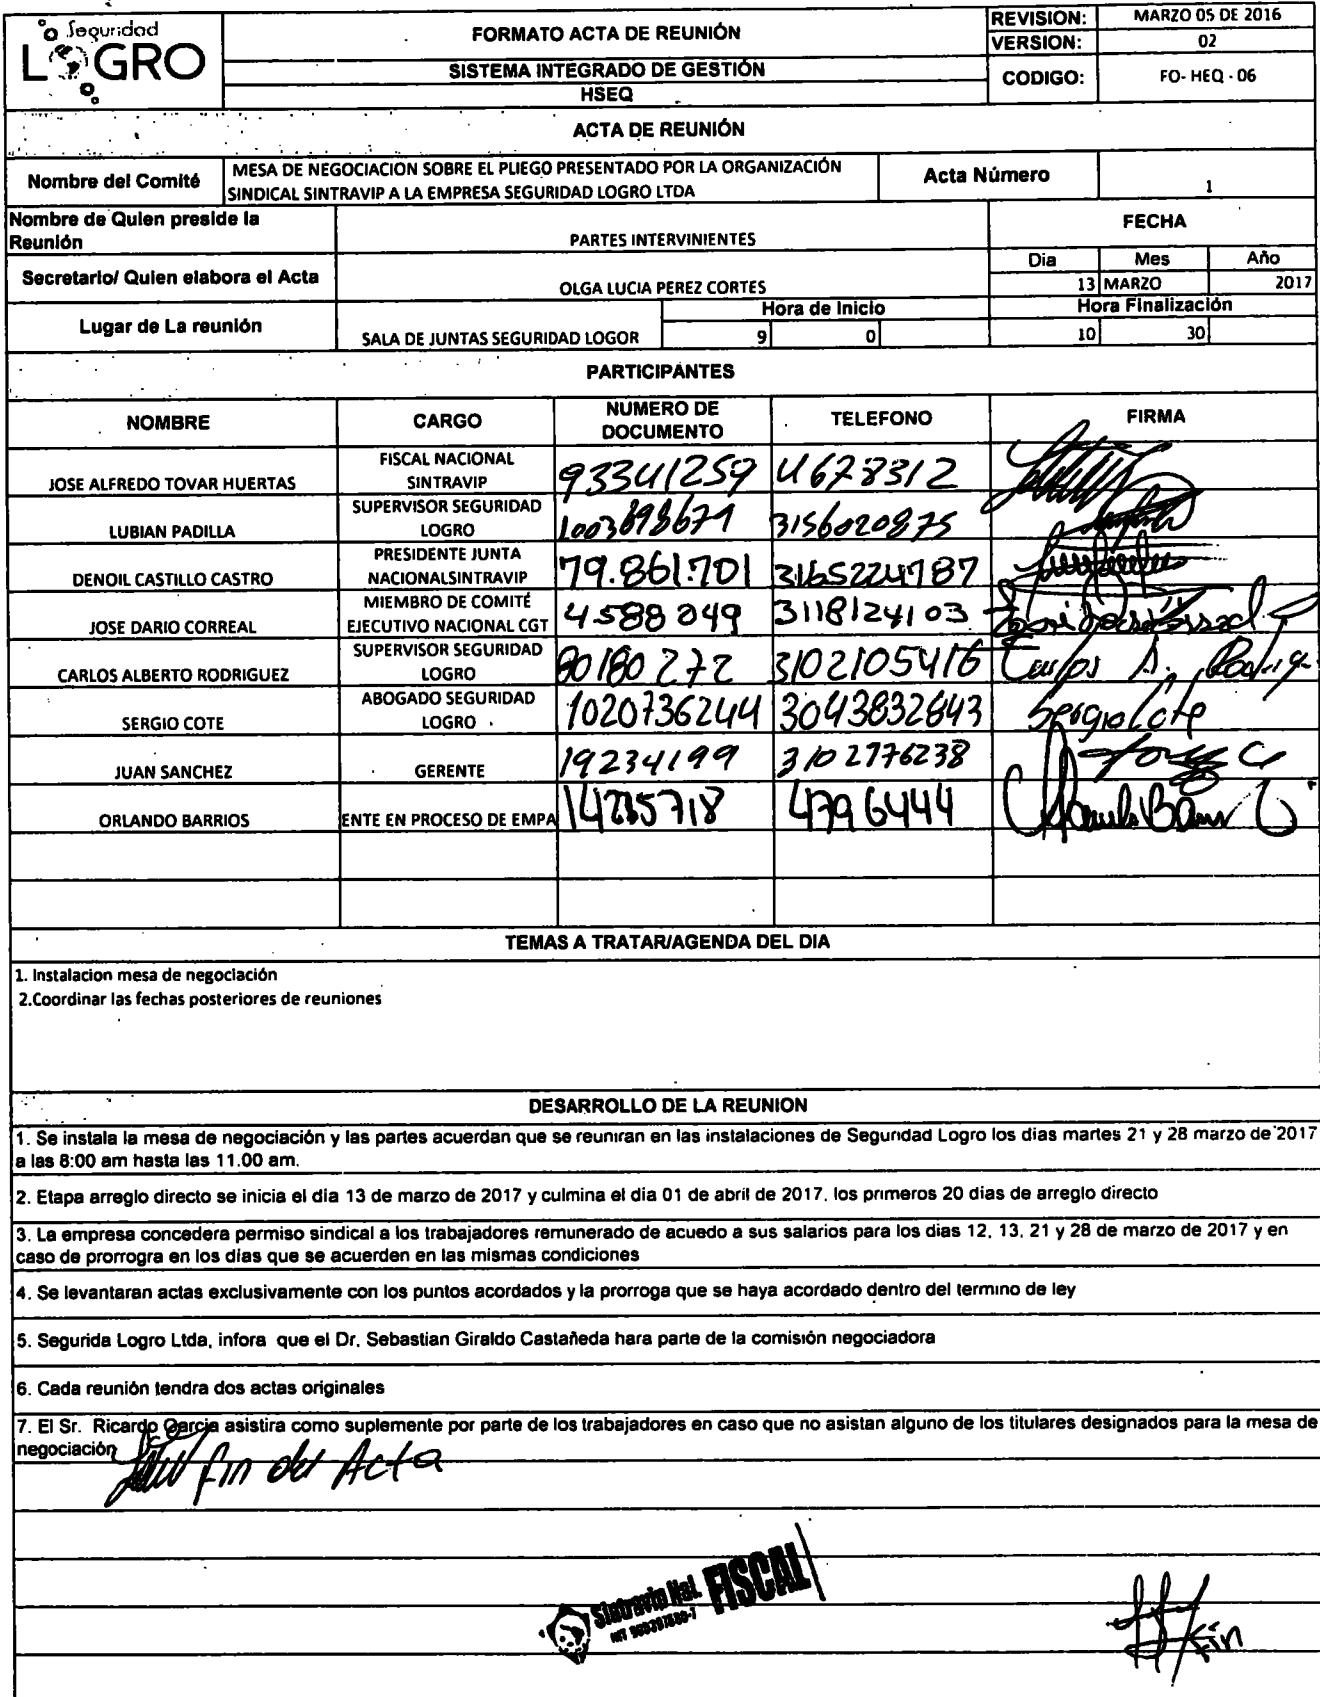 Seguridad
LOGRO
FORMATO ACTA DE REUNIÓN
SISTEMA INTEGRADO DE GESTIÓN
HSEQ
REVISION: MARZO 05 DE 2016
VERSION: 02
CODIGO: FO- HEQ - 06
ACTA DE REUNIÓN
Nombre del Comité
MESA DE NEGOCIACION SOBRE EL PLIEGO PRESENTADO POR LA ORGANIZACIÓN
SINDICAL SINTRAVIP A LA EMPRESA SEGURIDAD LOGRO LTDA
Acta Número 1
Nombre de Quien preside la
Reunión
PARTES INTERVINIENTES
FECHA
Secretario/ Quien elabora el Acta
OLGA LUCIA PEREZ CORTES
Dia Mes Año
13 MARZO 2017
Lugar de La reunión
SALA DE JUNTAS SEGURIDAD LOGOR
Hora de Inicio Hora Finalización
9 0 10 30
PARTICIPANTES
NOMBRE CARGO NUMERO DE DOCUMENTO TELEFONO FIRMA
JOSE ALFREDO TOVAR HUERTAS FISCAL NACIONAL SINTRAVIP 93341259 4678312
LUBIAN PADILLA SUPERVISOR SEGURIDAD LOGRO 1003898671 3156020875
DENOIL CASTILLO CASTRO PRESIDENTE JUNTA NACIONALSINTRAVIP 79.861.701 3165224787
JOSE DARIO CORREAL MIEMBRO DE COMITÉ EJECUTIVO NACIONAL CGT 4588049 3118124103
CARLOS ALBERTO RODRIGUEZ SUPERVISOR SEGURIDAD LOGRO 80180272 3102105416 Carlos A. Rodrigu
SERGIO COTE ABOGADO SEGURIDAD LOGRO 1020736244 3043832643 Sergio Cote
JUAN SANCHEZ GERENTE 19234199 3102776238
ORLANDO BARRIOS ENTE EN PROCESO DE EMPA 4796444
TEMAS A TRATAR/AGENDA DEL DIA
1. Instalacion mesa de negociación
2.Coordinar las fechas posteriores de reuniones
DESARROLLO DE LA REUNION
1. Se instala la mesa de negociación y las partes acuerdan que se reuniran en las instalaciones de Seguridad Logro los días martes 21 y 28 marzo de 2017
a las 8:00 am hasta las 11.00 am.
2. Etapa arreglo directo se inicia el dia 13 de marzo de 2017 y culmina el dia 01 de abril de 2017. los primeros 20 dias de arreglo directo
3. La empresa concedera permiso sindical a los trabajadores remunerado de acuedo a sus salarios para los dias 12, 13, 21 y 28 de marzo de 2017 y en
caso de prorrogra en los días que se acuerden en las mismas condiciones
4. Se levantaran actas exclusivamente con los puntos acordados y la prorroga que se haya acordado dentro del termino de ley
5. Segurida Logro Ltda, infora que el Dr. Sebastian Giraldo Castañeda hara parte de la comisión negociadora
6. Cada reunión tendra dos actas originales
7. El Sr. Ricardo Garcia asistira como suplemente por parte de los trabajadores en caso que no asistan alguno de los titulares designados para la mesa de
negociación
fin del Acta
Sintravip Nal. FISCAL
Fin